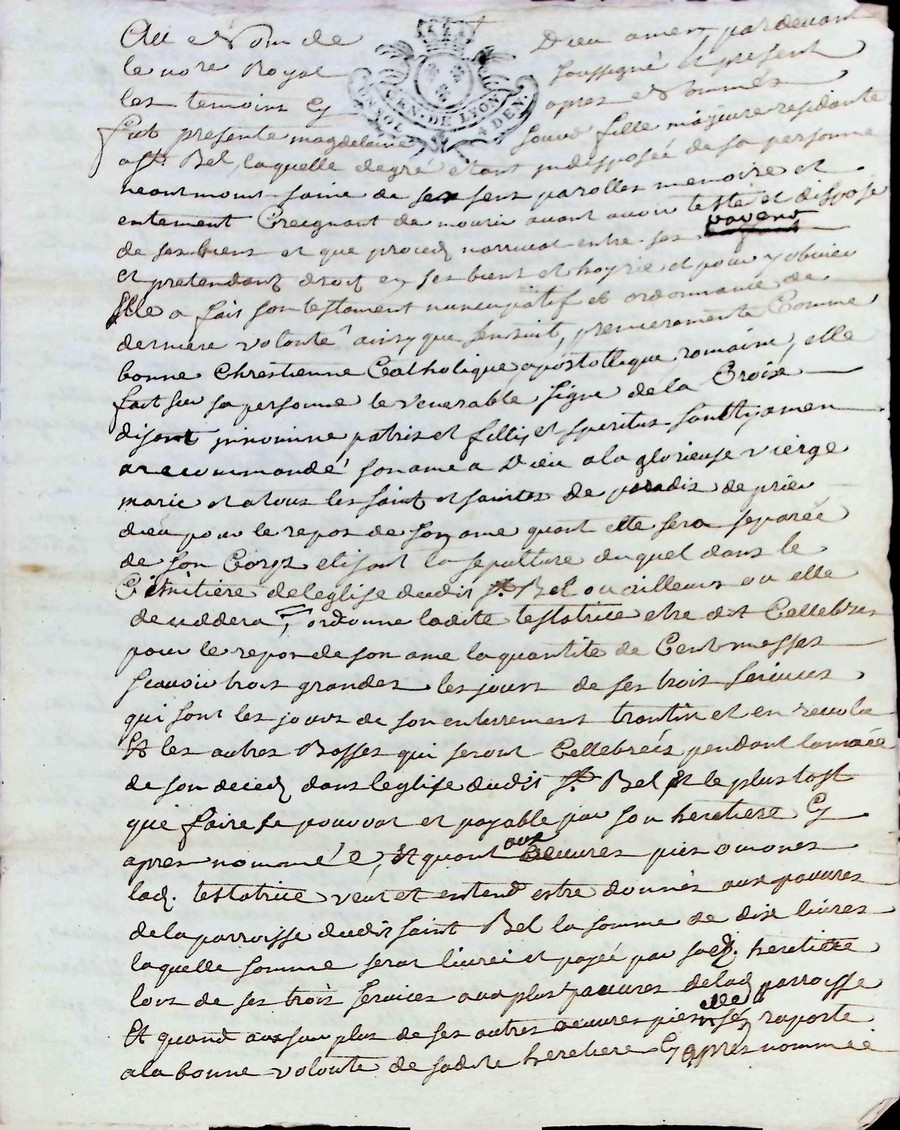 Au Nom de Dieu amen pardevant
le nore Royal soussigné et present
les temoins Cy apres Nommés
GEN. DE LYON
4 DEN.
fut presente magdelaine fille majeure residante
a st. Bel, laquelle degré etant jndisposée de sa personne
neant moins saine de ses sens parolles memoire et
entement Creignant de mourir avant avoir testé et disposé
de ses biens et que proces narrivat entre ses parens
et pretendans droit en ses biens et hoyrie et pour y obvier
Elle a fait son testament nuncupatif et ordonnance de
derniere volonté ainsy que sensuit, premieremente Comme
bonne Chrestienne Catholique apostollique romaine, elle
fait sur sa personne le venerable signe de la Croix
disant jnnomine patris et fillij et speritus santty amen
a recommandé son ame a Dieu a la glorieuse vierge
marie et a tous les saint et saintes de paradis de prier
dieu pour le repos de son ame quant elle sera separée
de son Corps elisant la sepulture duquel dans le
Cimitière de leglise dudit st. Bel ou ailleurs ou elle
decuddera, ordonne ladite testatrice etre dit Cellebres
pour le repos de son ame la quantité de Cent messes
scavoir trois grandes les jours de ses trois services
qui sont les jours de son enterrement trantin et en revolu
Et les autres Basses qui seront Cellebreés pendant lannée
de son deced dans leglise dudit st. Bel et le plus tost
que faire se pouvat et payable par son heretiere Cy
apres nommé e, Et quant aux Beuvres pies omones
lad. testatrice veut et entend estre donnés aux pauvres
de la parroisse dudit saint Bel la somme de dix livres
laquelle somme serat livrei et payée par sad. heretiere
lors de ses trois services aux plus pauvres de lad parroisse
Et quand aux surplus de ses autres oeuvres pies elle sén raporte
a la bonne volonté de sadite heretiere Cy apres nommée